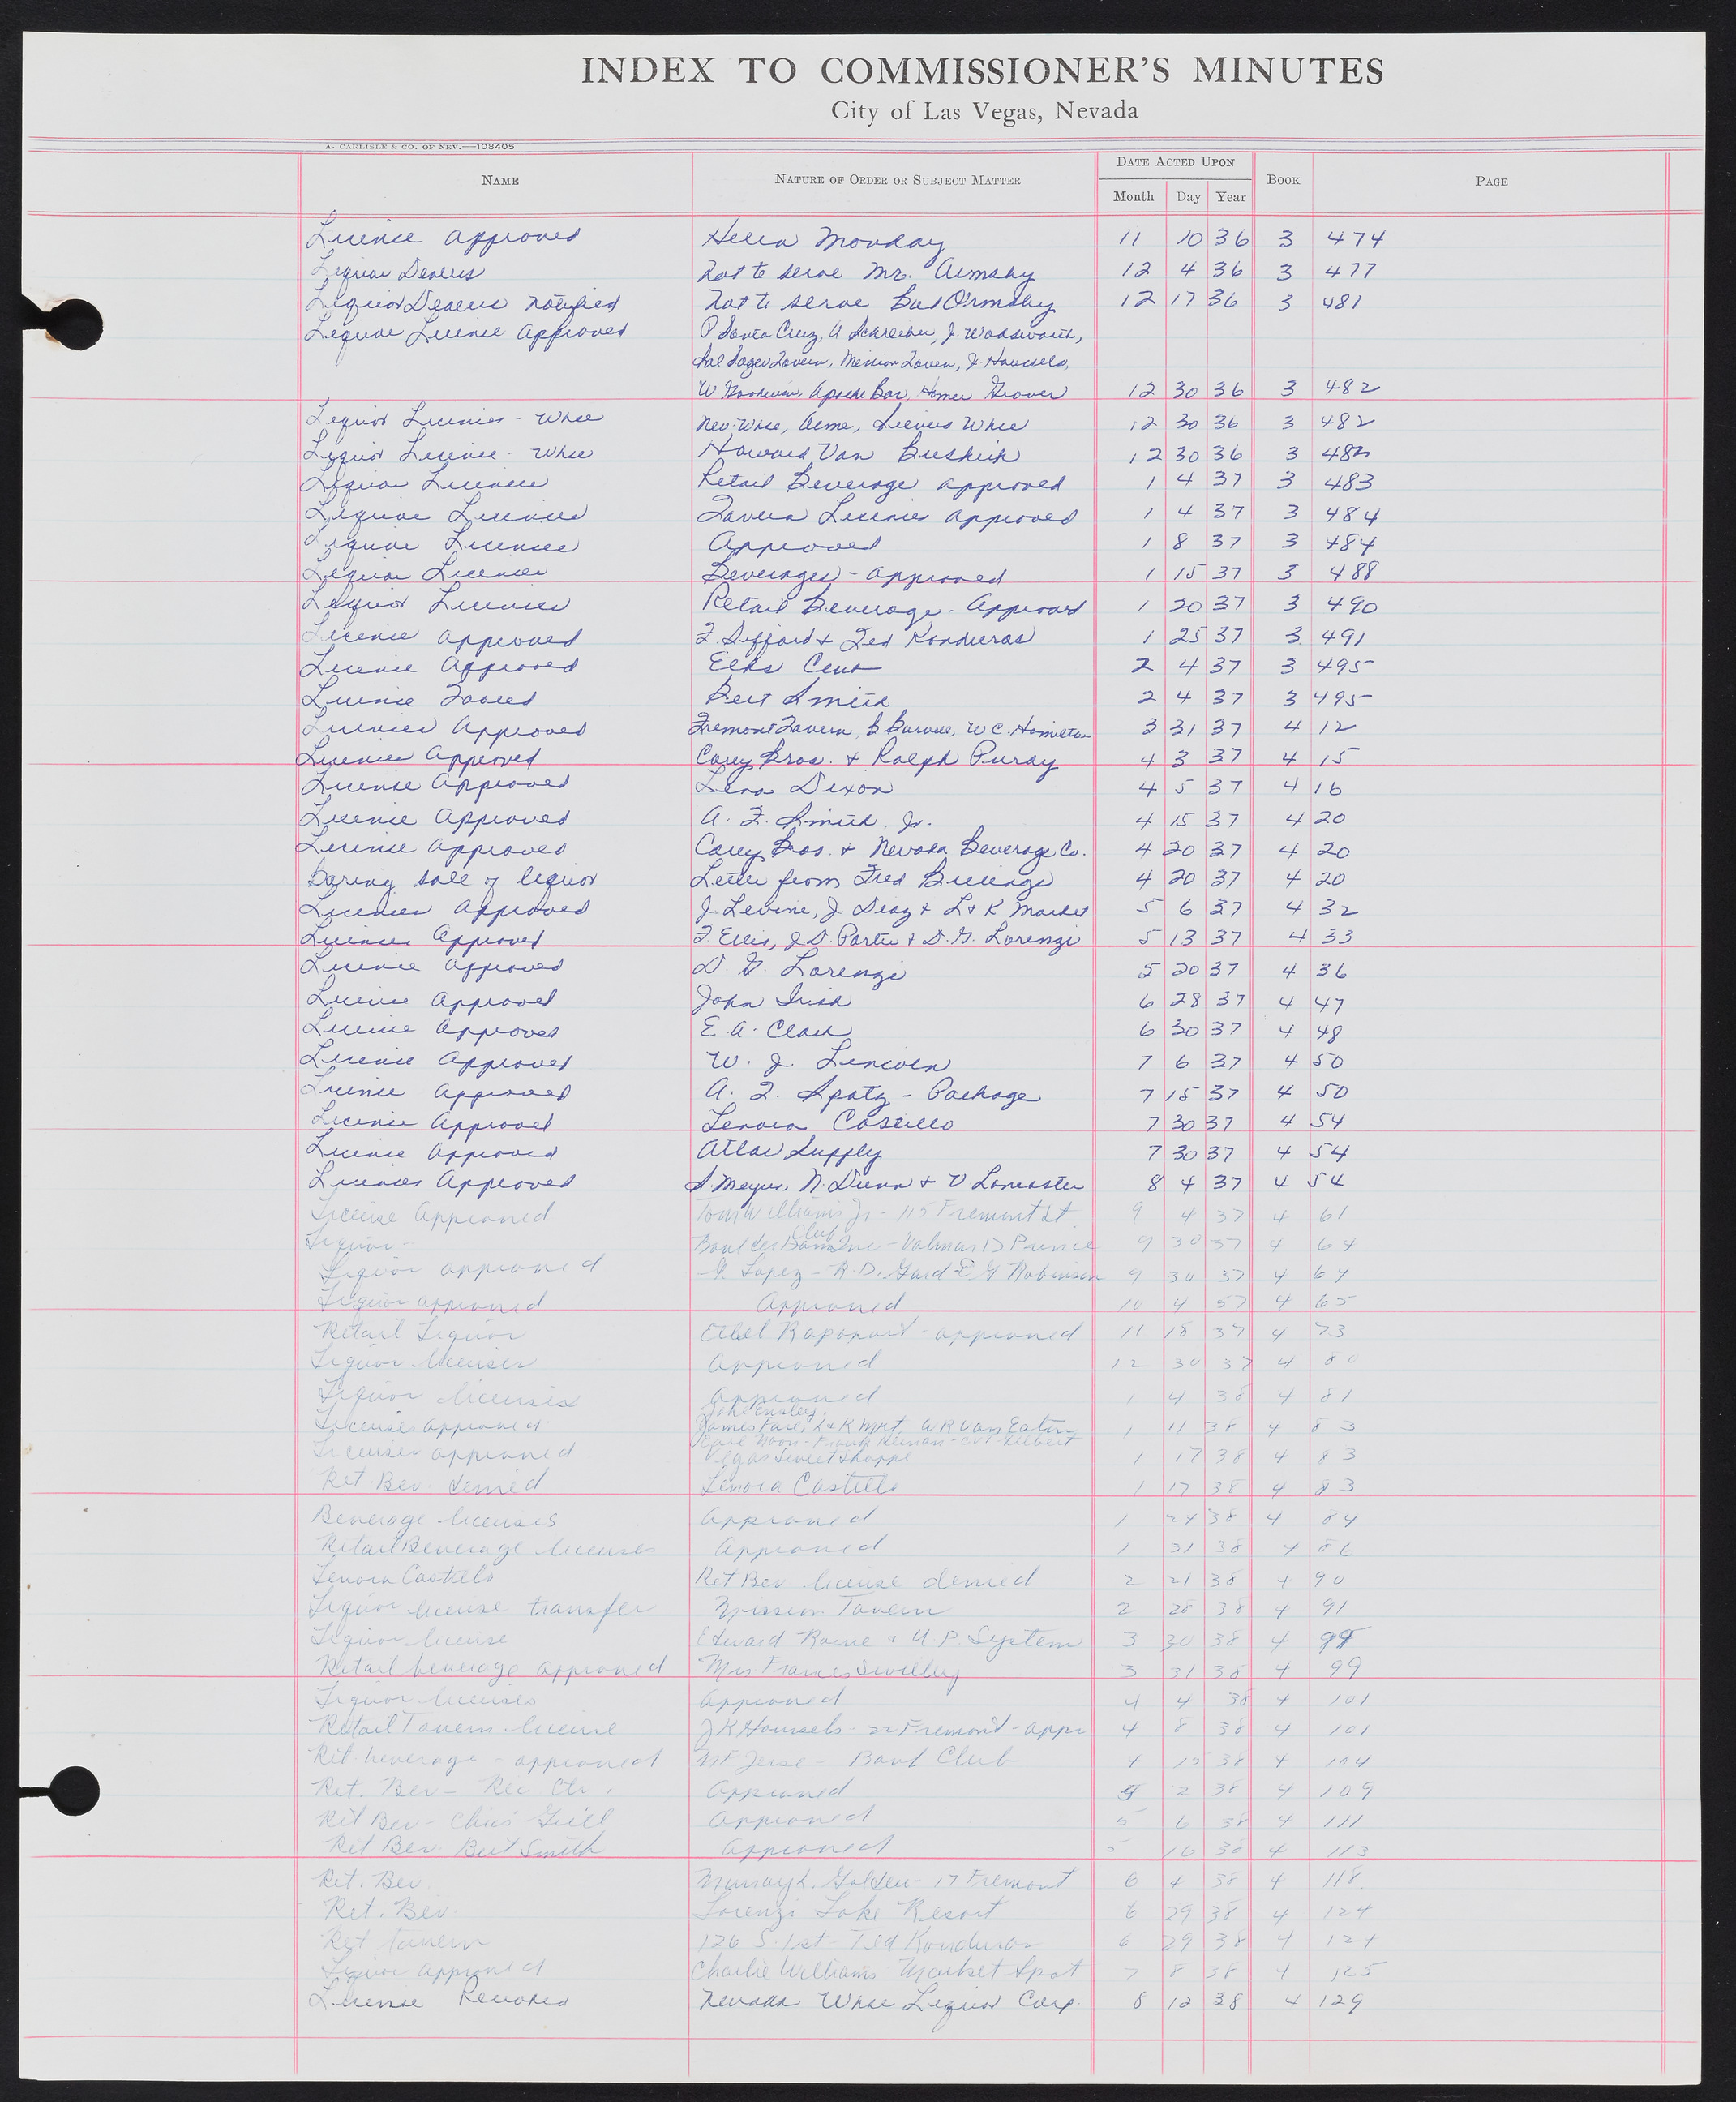 INDEX TO COMMISSIONER'S MINUTES
City of Las Vegas, Nevada
A. CARLISLE & CO. OF NEV.—108405
NAME NATURE OF ORDER OR SUBJECT MATTER DATE ACTED UPON BOOK PAGE
Month Day Year
License Approved Helen Monday 11 10 36 3 474
Liquor Dealers Not to serve Mr. Armsby 12 4 36 3 477
Liquor Dealers notified Not to serve Bud Ormsby 12 17 36 3 481
Liquor License Approved P Santa Cruz, A Schreiber, J. Wadsworth,
Sal Sagev Tavern, Mission Tavern, J. Houssels,
W Goodwin, Apache Bar, Homer Grover 12 30 36 3 482
Liquor Licenses - Whse Nev. Whse, Acme, Sievers Whse 12 30 36 3 482
Liquor License - Whse Howard Van Buskirk 12 30 36 3 482
Liquor Licenses Retail Beverage approved 1 4 37 3 483
Liquor Licenses Tavern Licenses approved 1 4 37 3 484
Liquor Licenses Approved 1 8 37 3 484
Liquor Licenses Beverages - approved 1 15 37 3 488
Liquor Licenses Retail Beverage - Approved 1 20 37 3 490
License approved F. Sifford & Ted Konduras 1 25 37 3 491
License Approved Elks 2 4 37 3 495
License Bert Smith 2 4 37 3 495
Licenses Approved Fremont Tavern, B Burwell, W C. Hamilton 3 31 37 4 12
Licenses Approved Carey Bros. & Ralph Purdy 4 3 37 4 15
License Approved Lena Dixon 4 5 37 4 16
License Approved A. F. Smith, Jr. 4 15 37 4 20
License Approved Carey Bros. & Nevada Beverage Co. 4 20 37 4 20
Baring sale of liquor Letter from Fred 4 20 37 4 20
Licenses Approved J. Levine, J Diaz & L & K Market 5 6 37 4 32
Licenses Approved F Ellis, J. D. Porter & D. G. Lorenzi 5 13 37 4 33
License Approved D. G. Lorenzi 5 20 37 4 36
License Approved John Irish 6 28 37 4 47
License Approved E. A. Clark 6 30 37 4 48
License Approved W. J. Lincoln 7 6 37 4 50
License Approved A. F. Spatz - Package 7 15 37 4 50
License Approved Lenora Castillo 7 30 37 4 54
License Approved Atlas Supply 7 30 37 4 54
Licenses Approved S. Meyers, N. Dunn & V Lancaster 8 4 37 4 54
License Approved Tom Williams Jr - 115 Fremont St. 9 4 37 4 61
Liquor - Boulder Dam Club Inc - Valmas D Prince 9 30 37 4 64
Liquor approved I. Lopez - R. D. Gard - E G Robinson 9 30 37 4 64
Liquor approved Approved 10 4 37 4 65
Retail Liquor Ethel Rapaport - approved 11 18 37 4 73
Liquor licenses Approved 12 30 37 4 80
Liquor licenses Approved 1 4 38 4 81
Jake Ensley,
Licenses approved James Farl, L & K Mrkt, W R Van Eaton 1 11 38 4 83
Earl Noon - Frank Heinan -
Licenses approved Vegas Sweet Shoppe 1 17 38 4 83
Ret. Bev. denied Lenora Castillo 1 17 38 4 83
Beverage licenses Approved 1 24 38 4 84
Retail Beverage licenses Approved 1 31 38 4 86
Lenora Castillo Ret Bev license denied 2 21 38 4 90
Liquor license transfer Mission Tavern 2 28 38 4 91
Liquor license Edward U P. System 3 30 38 4 99
Retail beverage approved Mrs Frances Swilley 3 31 38 4 99
Liquor licenses Approved 4 4 38 4 101
Retail Tavern license J K Houssels - 22 Fremont - appr 4 8 38 4 101
Ret. beverage - approved Club 4 15 38 4 104
Ret. Bev - Rec Ctr. Approved 5 2 38 4 109
Ret Bev - Chris Grill Approved 5 6 38 4 111
Ret Bev. Bert Smith Approved 5 16 38 4 113
Ret. Bev. Murray L. Golden - 17 Fremont 6 4 38 4 118
Ret. Bev. Lorenzi Lake Resort 6 29 38 4 124
Ret tavern 126 S. 1st - Ted Konduras 6 29 38 4 124
Liquor approved Charlie Williams Market Spot 7 8 38 4 125
License Revoked Nevada Whse Liquor Corp. 8 12 38 4 129